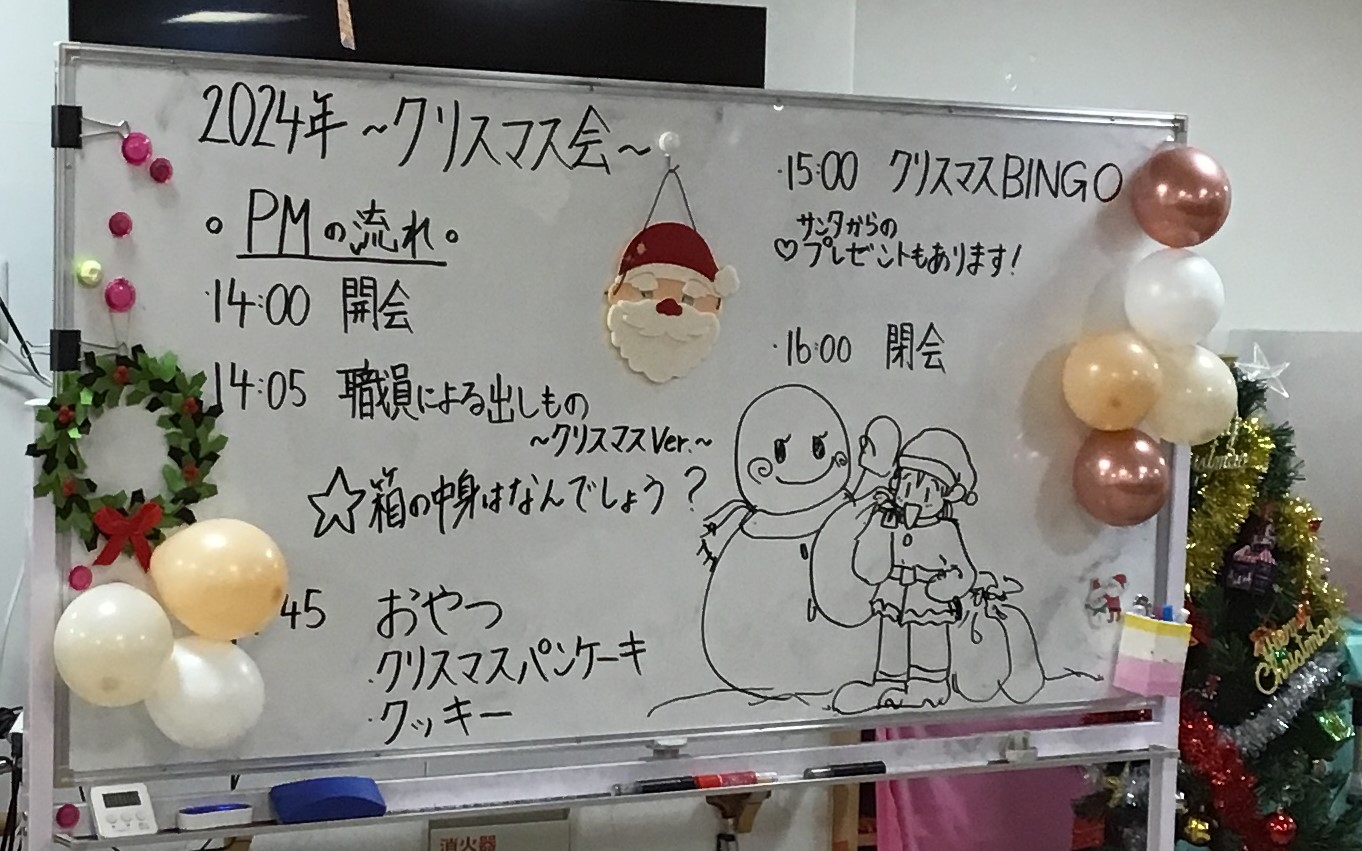 2024年 ~クリスマス会~
。PMの流れ。
・14:00 開会
14:05 職員による出しもの
~クリスマスVer.~
☆箱の中身はなんでしょう?
45 おやつ
・クリスマスパンケーキ
・クッキー
・15:00 クリスマスBINGO
サンタからの
♡プレゼントもあります!
・16:00 閉会
Merry
Christmas
消火器